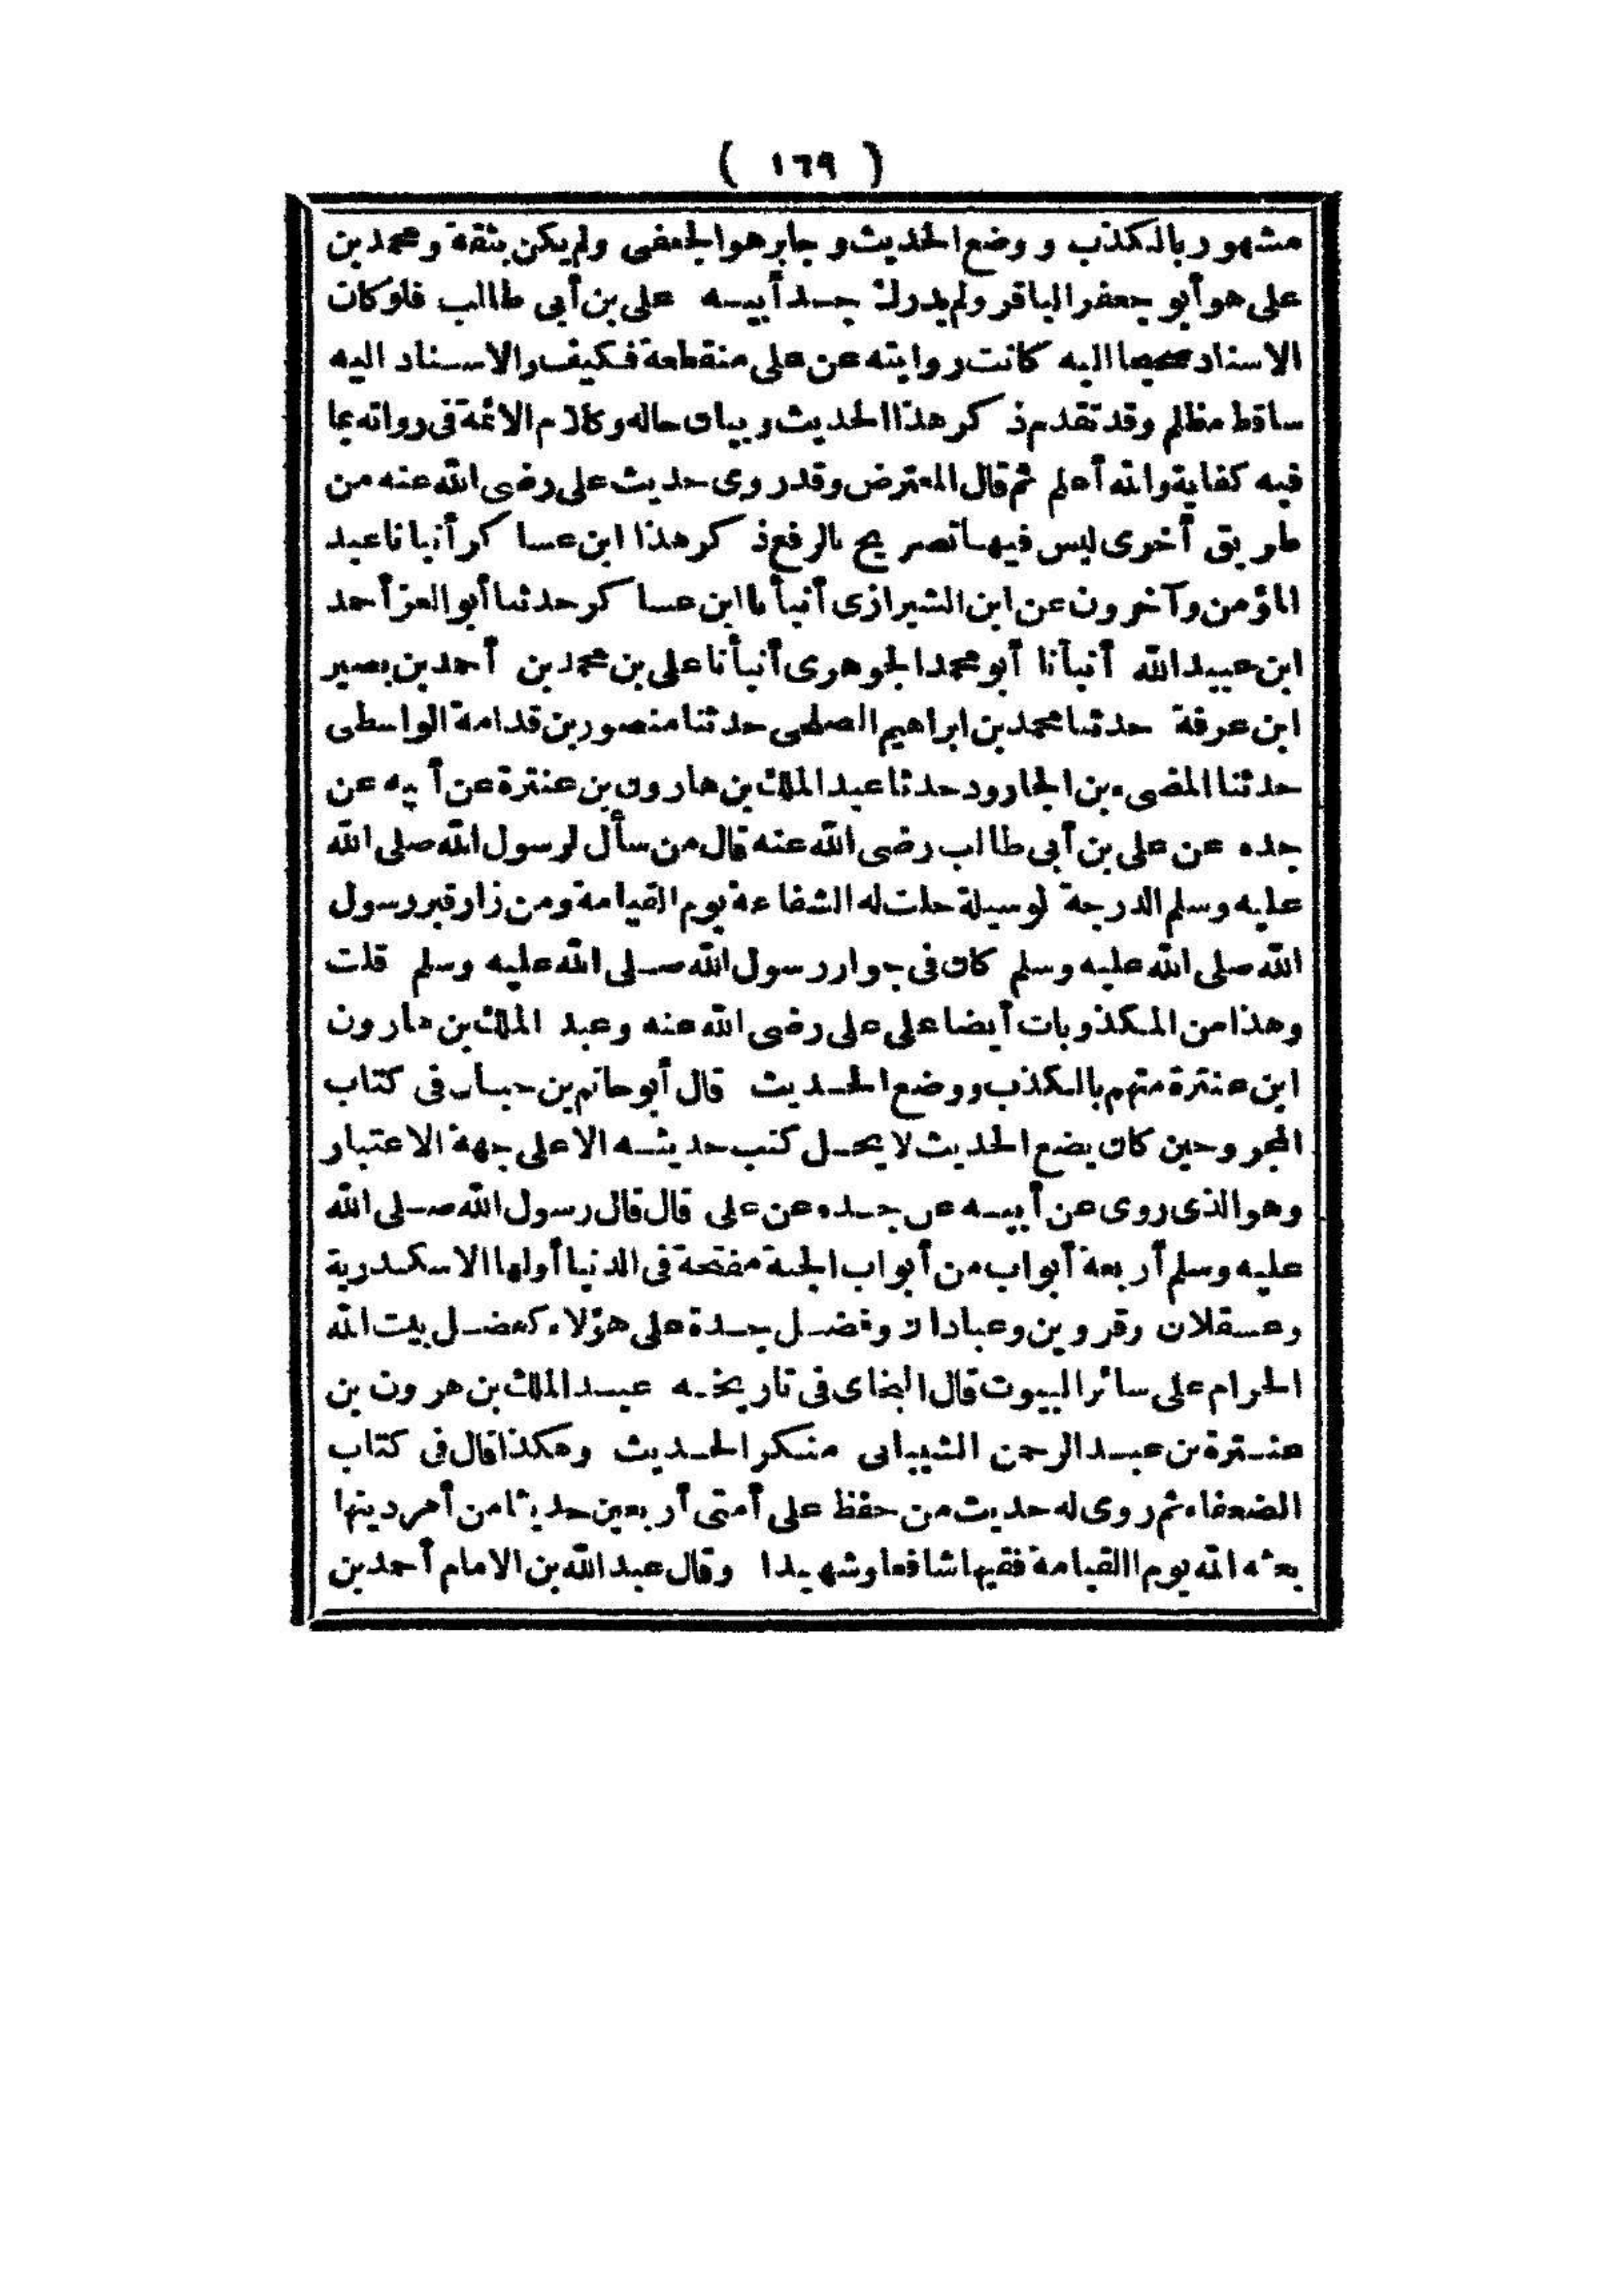 ( ١٦٩ )
مشهور بالكذب و وضع الحديث و جابر هو الجعفى ولم يكن بثقة ومحمد بن
على هو أبو جعفر الباقر ولم يدرك جد أبيه على بن أبى طالب فلو كان
الاسناد صحيحا اليه كانت روايته عن على منقطعة فكيف والاسناد اليه
ساقط مظلم وقد تقدم ذكر هذا الحديث وبيان حاله وكلام الائمة فى رواته بما
فيه كفاية والله أعلم ثم قال المعترض وقد روى حديث على رضى الله عنه من
طريق أخرى ليس فيها تصريح بالرفع ذكر هذا ابن عساكر أنبانا عبد
المؤمن وآخرون عن ابن الشيرازى أنبأنا ابن عساكر حدثنا أبو العز أحمد
ابن عبيد الله أنبأنا أبو محمد الجوهرى أنبأنا على بن محمد بن أحمد بن نصير
ابن عرفة حدثنا محمد بن ابراهيم الصلحى حدثنا منصور بن قدامة الواسطى
حدثنا المضىء بن الجارود حدثنا عبد الملك بن هارون بن عنترة عن أبيه عن
جده عن على بن أبى طالب رضى الله عنه قال من سأل لرسول الله صلى الله
عليه وسلم الدرجة لوسيلة حلت له الشفاعة يوم القيامة ومن زار قبر رسول
الله صلى الله عليه وسلم كان فى جوار رسول الله صلى الله عليه وسلم قلت
وهذا من المكذوبات أيضا على على رضى الله عنه وعبد الملك بن هارون
ابن عنترة متهم بالكذب ووضع الحديث قال أبو حاتم بن حبان فى كتاب
المجروحين كان يضع الحديث لا يحل كتب حديثه الا على جهة الاعتبار
وهو الذى روى عن أبيه عن جده عن على قال قال رسول الله صلى الله
عليه وسلم أربعة أبواب من أبواب الجنة مفتحة فى الدنيا أولها الاسكندرية
وعسقلان وقزوين وعبادان وفضل جدة على هؤلاء كفضل بيت الله
الحرام على سائر البيوت قال البخاى فى تاريخه عبد الملك بن هرون بن
عنترة بن عبد الرحمن الشيبانى منكر الحديث وهكذا قال فى كتاب
الضعفاء ثم روى له حديث من حفظ على أمتى أربعين حديثا من أمر دينها
بعثه الله يوم االقيامة فقيها شافعا وشهيدا وقال عبد الله بن الامام أحمد بن